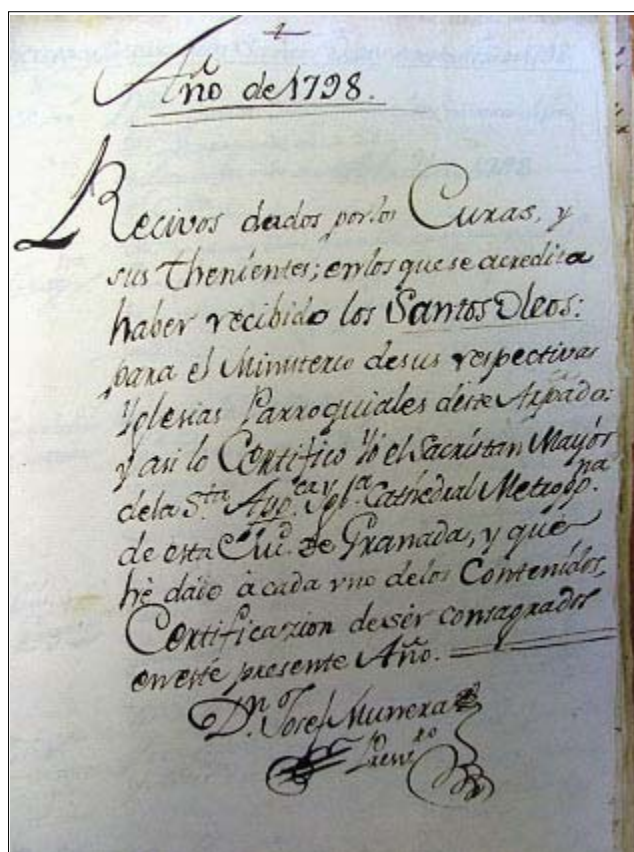 Año de 1798.
Recivos dados por los Curas, y
sus Thenientes; en los que se acredita
haber recibido los Santos Oleos:
para el Ministerio de sus respectivas
Yglesias Parroquiales deste Arzpado:
y asi lo Certifico Yo el Sacristan Mayor
de la S.ta App.ca Ygl.a Cathedral Metropp.na
de esta Ciu.d de Granada, y que
hè dado à cada vno de los Contenidos,
Certificazion de sér consagrados
en esté presente Año.
D.n Josef Munera